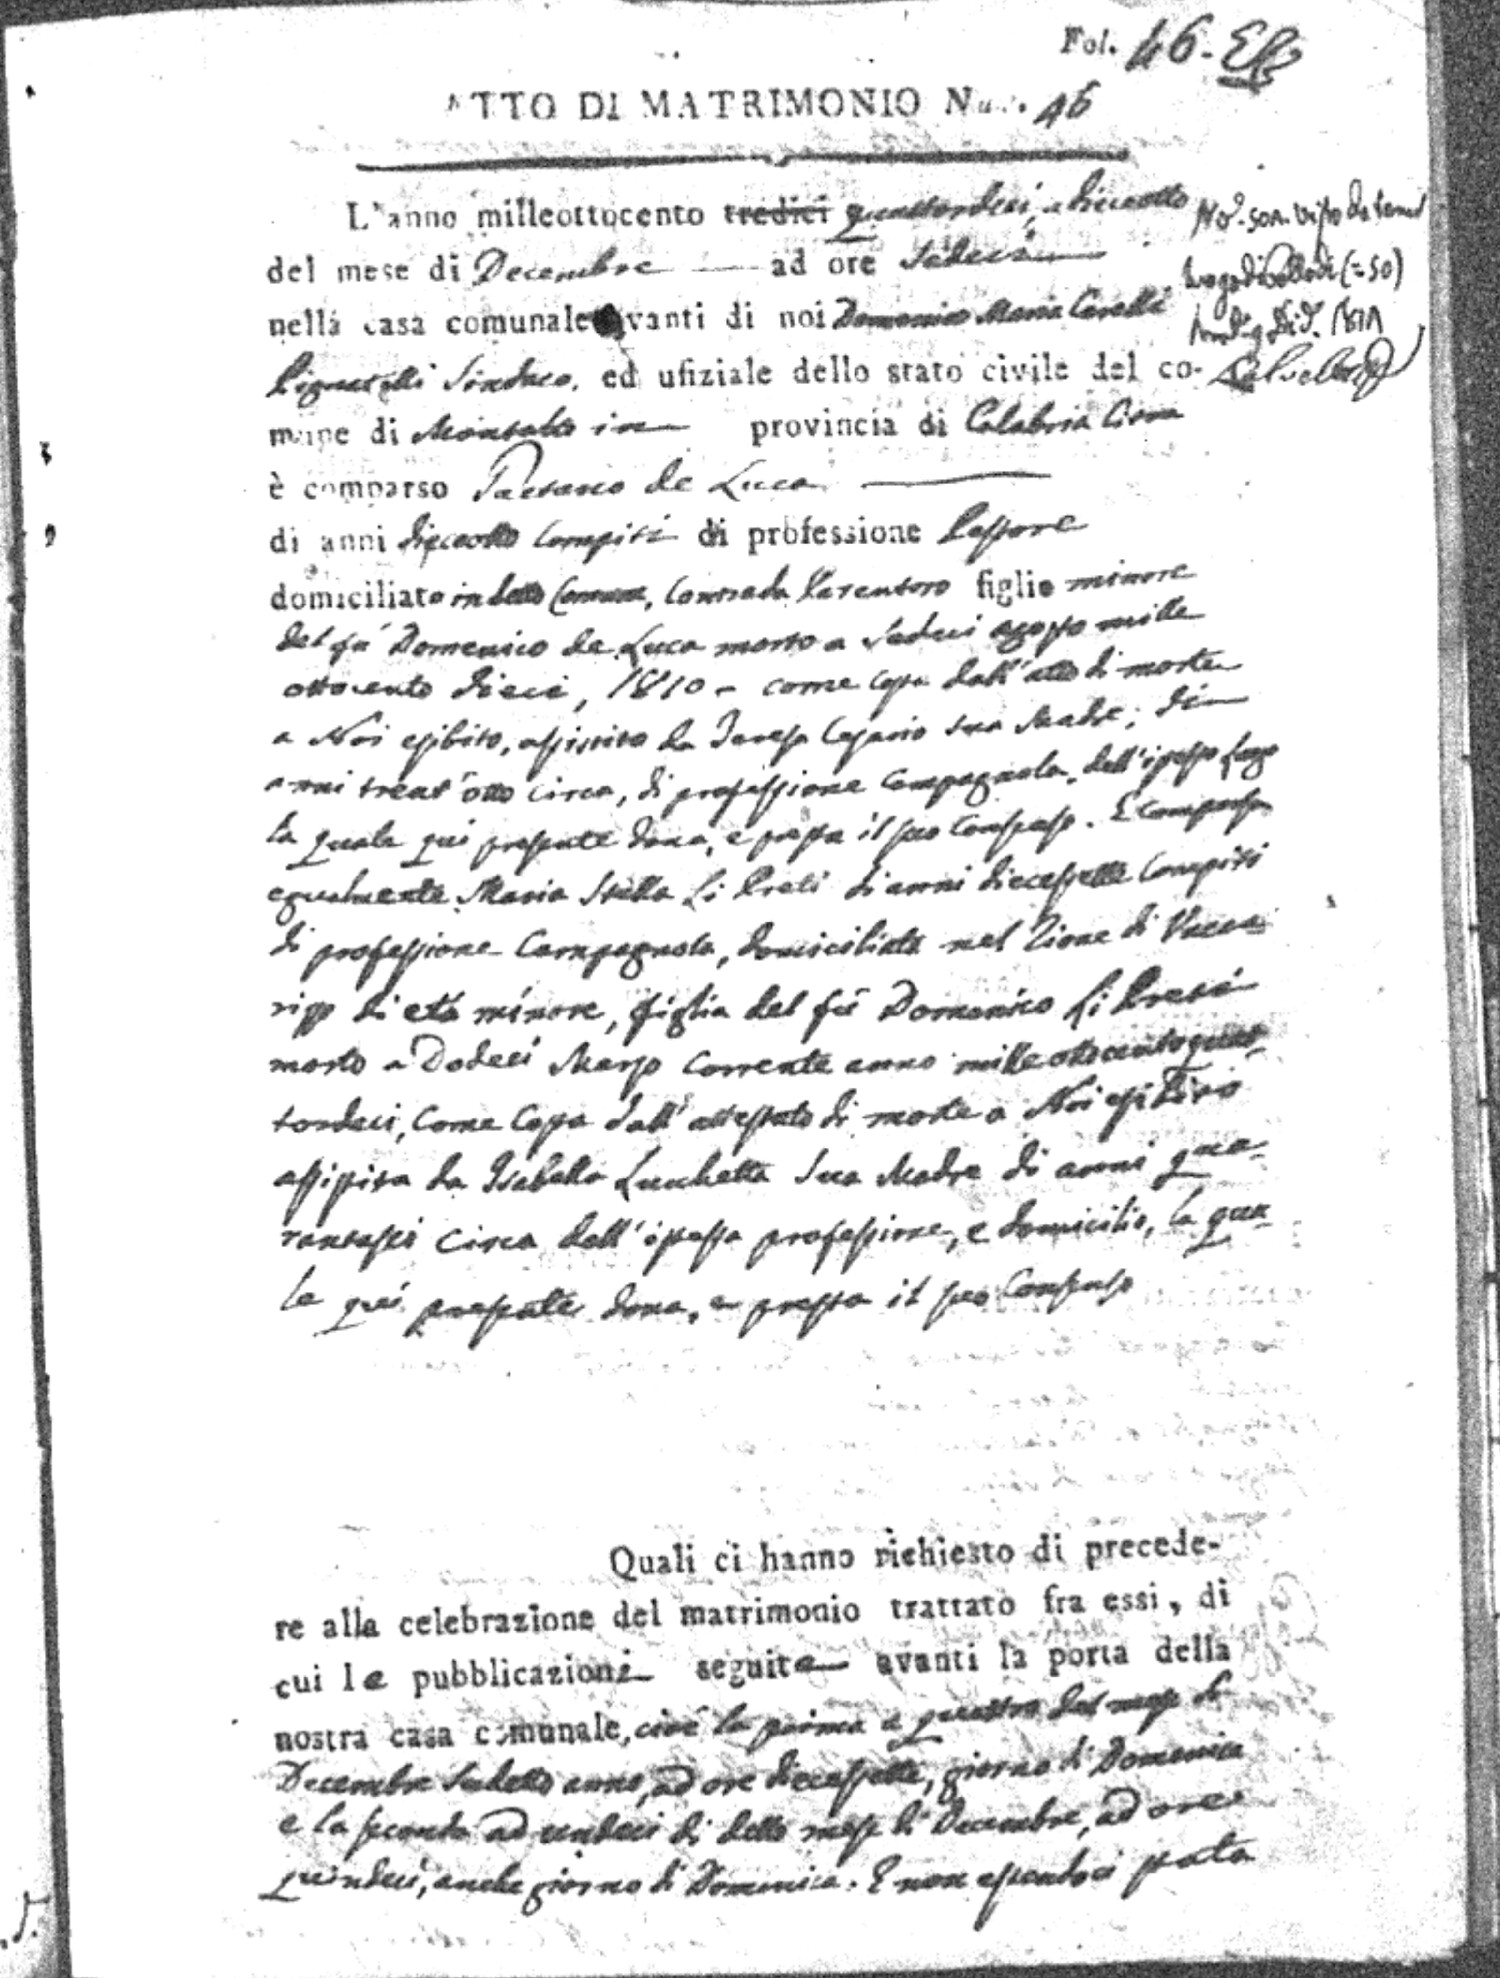 Fol. 46.
ATTO DI MATRIMONIO Num. 46
L'anno milleottocento tredici quattordici, a dieciotto
del mese di Decembre ad ore Sedeci
nella casa comunale avanti di noi Domenico Maria
Pignatelli Sindaco, ed ufiziale dello stato civile del co-
mune di Montalto in provincia di Calabria Citra
è comparso Gaetano de Luca
di anni dieciotto compiti di professione Pastore
domiciliato in detto Comune, Contrada figlio minore
del fù Domenico de Luca morto a Sedeci agosto mille
ottocento dieci, 1810 - come costa dall'atto di morte
a Noi esibito, assistito da Teresa Cesario sua Madre, di
anni trent'otto circa, di professione Campagnola, dell'istesso luogo
la quale quì presente dona, e presta il suo Consenso. E comparsa
egualmente Maria Stella Li Preti di anni diecessette compiti
di professione Campagnola, domiciliata nel Rione di Vacca-
rizzo di età minore, figlia del fù Domenico Li Preti
morto a Dodeci Marzo corrente anno mille ottocentoquat-
tordeci, come costa dall'attestato di morte a Noi esibito
assistita da Isabella Lucchetta Sua Madre di anni qua-
rantasei circa dell'istessa professione, e domicilio, la qua-
le quì presente dona, e presta il suo Consenso
Quali ci hanno richiesto di precede-
re alla celebrazione del matrimonio trattato fra essi, di
cui le pubblicazioni seguite avanti la porta della
nostra casa comunale, cioè la prima a quattro del mese di
Decembre sudetto anno, ad ore diecessette, giorno di Domenica
e la seconda ad undeci di detto mese di Decembre, ad ore
quindeci, anche giorno di Domenica. E non essendoci stata